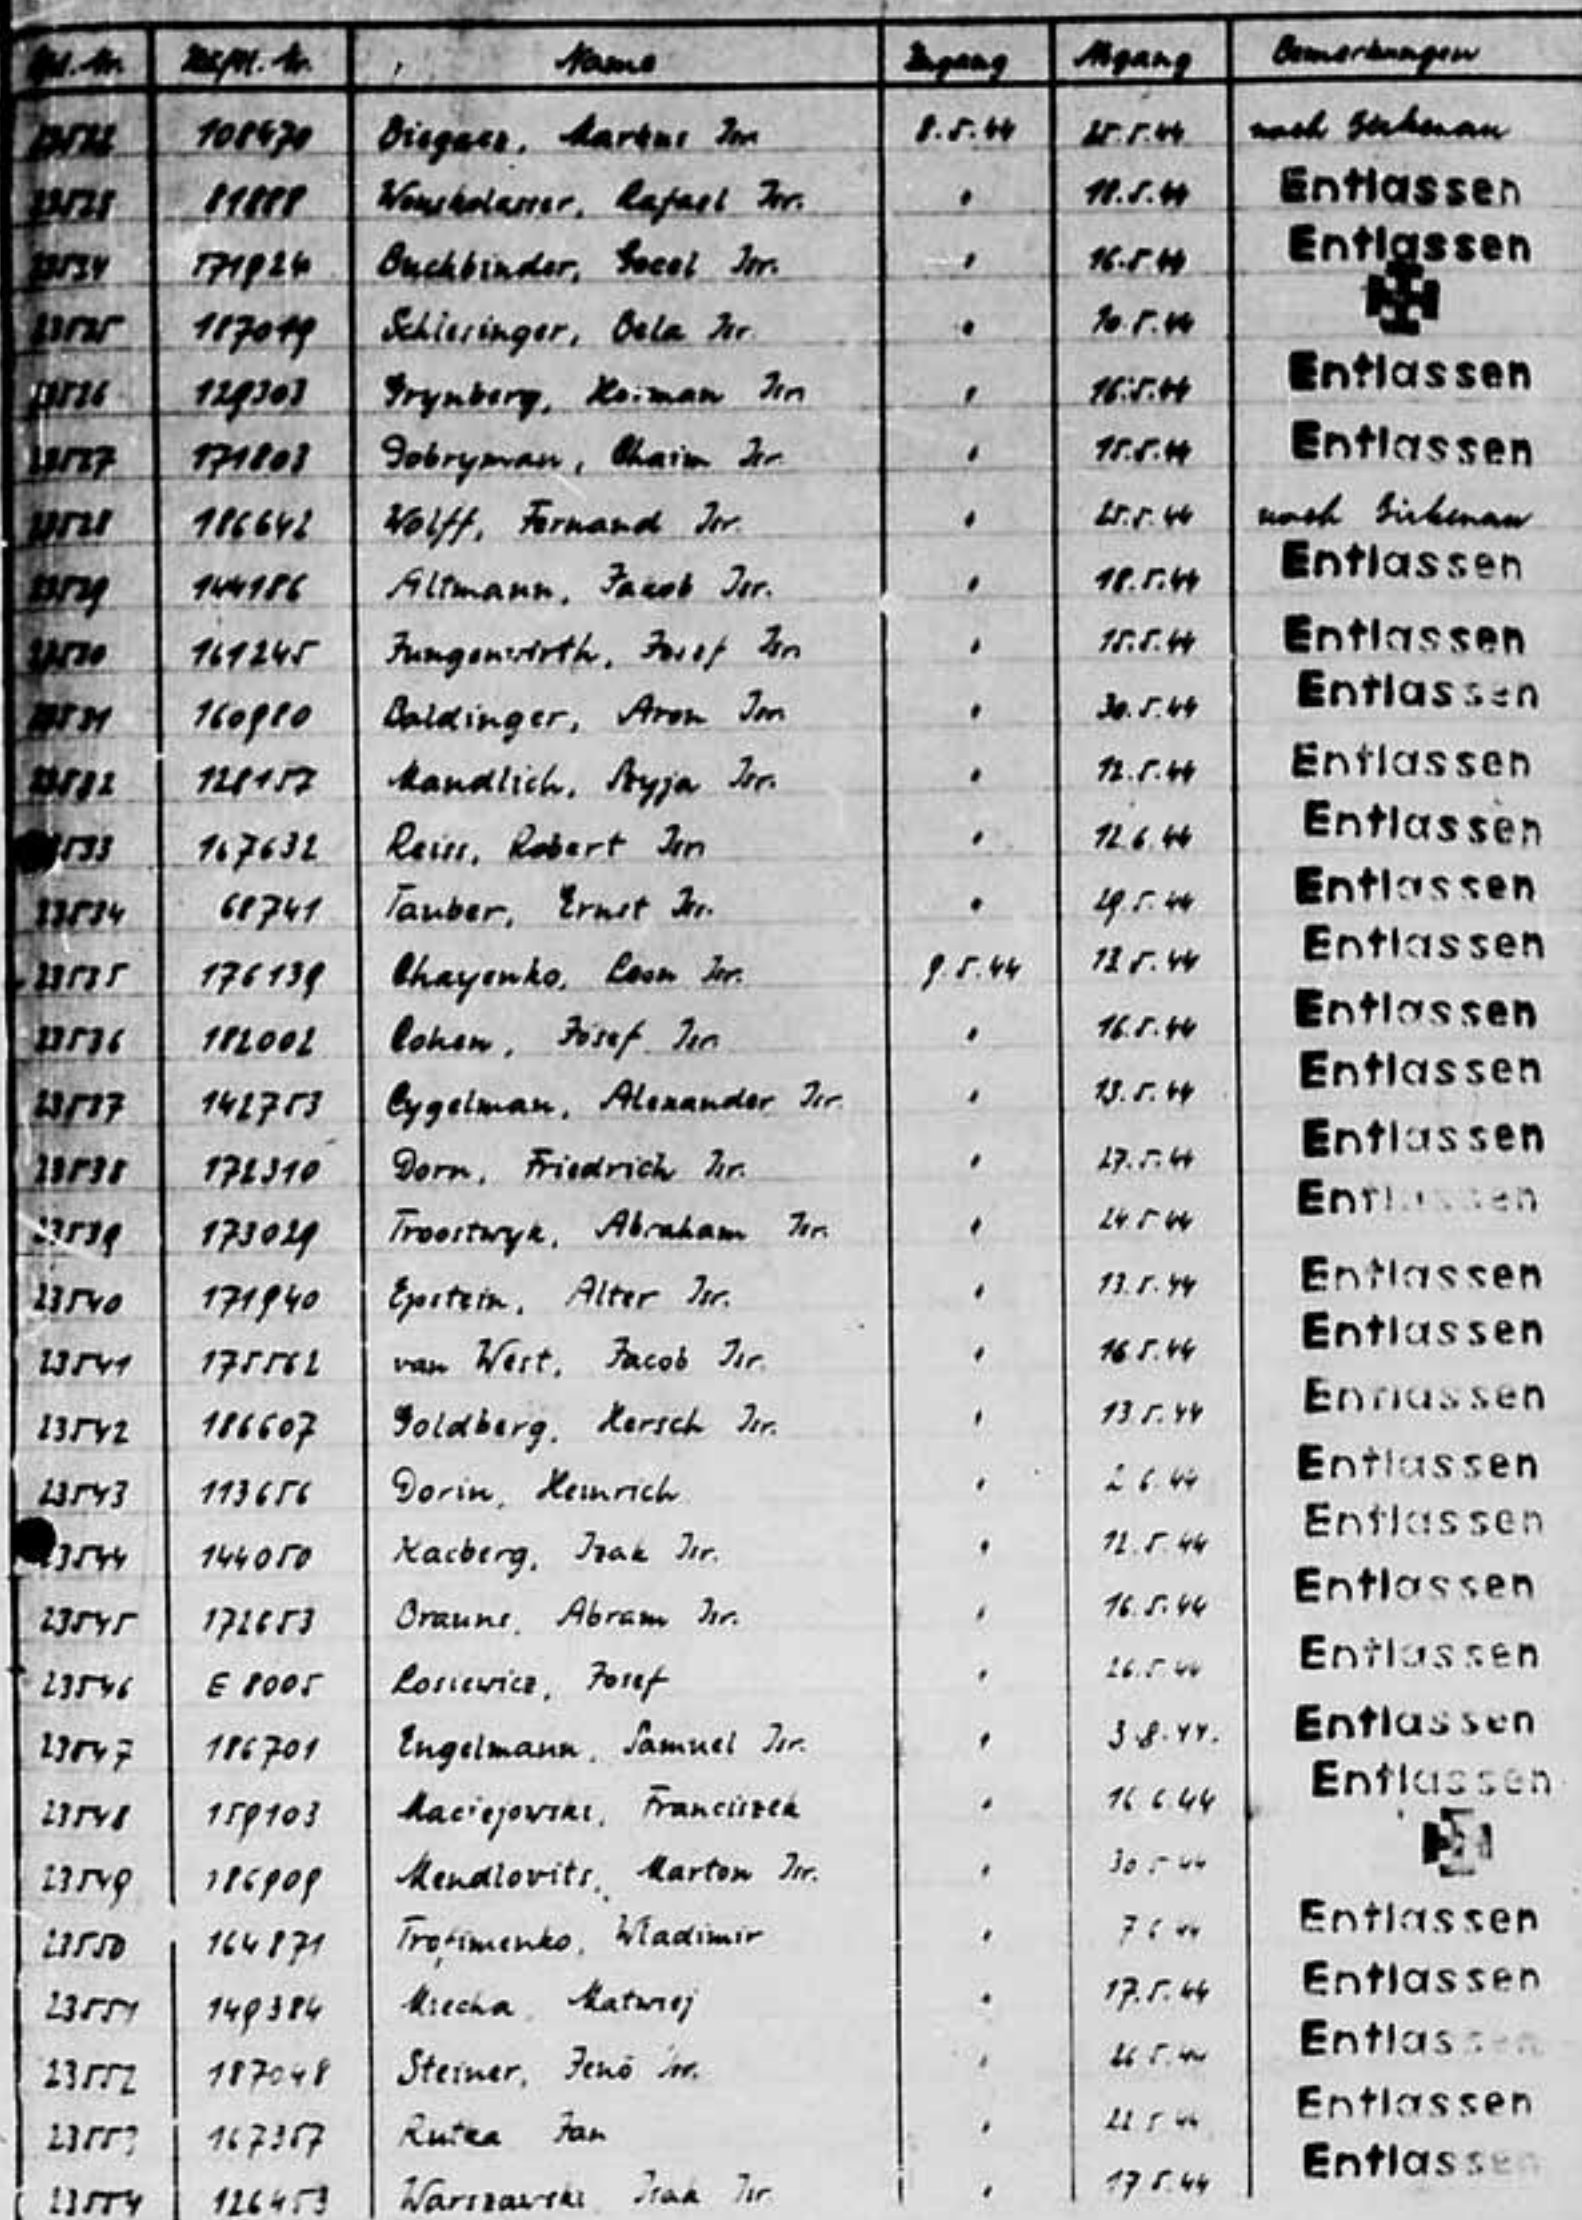 Lfd. Nr. Häftl. Nr. Name Zugang Abgang Bemerkungen
23522 108470 Markus Isr. 8.5.44 25.5.44 nach Birkenau
23523 81888 Rafael Isr. " 18.5.44 Entlassen
23524 171924 Buchbinder, Gecel Isr. " 16.5.44 Entlassen
23525 187019 Schlesinger, Bela Isr. " 10.5.44
23526 129303 Grynberg, Haiman Isr. " 16.5.44 Entlassen
23527 171803 Dobryman, Chaim Isr. " 15.5.44 Entlassen
23528 186642 Wolff, Fernand Isr. " 25.5.44 nach Birkenau
23529 144186 Altmann, Jacob Isr. " 18.5.44 Entlassen
23530 161245 Jungenwirth, Josef Isr. " 15.5.44 Entlassen
23531 160980 Baldinger, Aron Isr. " 30.5.44 Entlassen
23532 128157 Mandlich, Isr. " 12.5.44 Entlassen
23533 167632 Reiss, Robert Isr. " 12.6.44 Entlassen
23534 68741 Tauber, Ernst Isr. " 29.5.44 Entlassen
23535 176139 Chayenko, Leon Isr. 9.5.44 12.5.44 Entlassen
23536 182002 Cohen, Josef Isr. " 16.5.44 Entlassen
23537 142753 Cygelman, Alexander Isr. " 13.5.44 Entlassen
23538 172310 Dorn, Friedrich Isr. " 27.5.44 Entlassen
23539 173029 Troostwyk, Abraham Isr. " 24.5.44 Entlassen
23540 171940 Epstein, Alter Isr. " 13.5.44 Entlassen
23541 175562 van West, Jacob Isr. " 16.5.44 Entlassen
23542 186607 Goldberg, Hersch Isr. " 13.5.44 Entlassen
23543 113656 Dorin, Heinrich " 2.6.44 Entlassen
23544 144050 Kacberg, Izak Isr. " 12.5.44 Entlassen
23545 172653 Brauns, Abram Isr. " 16.5.44 Entlassen
23546 E 8005 Losiewicz, Josef " 26.5.44 Entlassen
23547 186701 Engelmann, Samuel Isr. " 3.8.44. Entlassen
23548 159103 Maciejowski, Franciszek " 16.6.44 Entlassen
23549 186909 Mendlovits, Marton Isr. " 30.5.44
23550 164871 Trofimenko, Wladimir " 7.6.44 Entlassen
23551 149384 Miecha Matwiej " 17.5.44 Entlassen
23552 187048 Steiner, Jenö Isr. " 26.5.44 Entlassen
23553 167357 Rutka Jan " 22.5.44 Entlassen
23554 126453 Warszawski Izak Isr. " 17.5.44 Entlassen